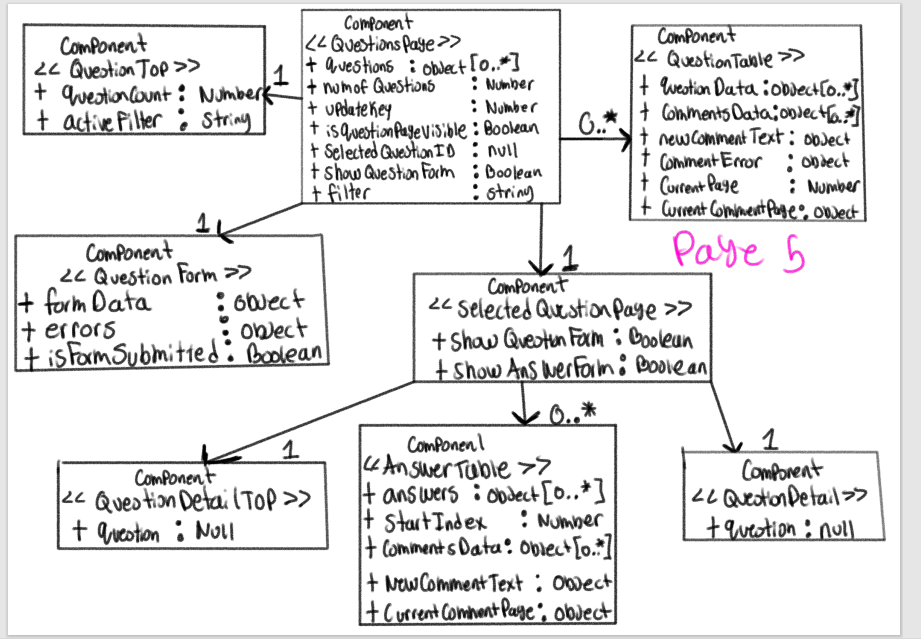 Component
<< QuestionTop >>
+ questionCount : Number
+ activeFilter : String
1
Component
<< QuestionsPage >>
+ questions : object[0..*]
+ numofQuestions : Number
+ updateKey : Number
+ isquestionPageVisible : Boolean
+ SelectedQuestionID : null
+ Show QuestionForm : Boolean
+ filter : string
0..*
Component
<< QuestionTable >>
+ question Data : object[0..*]
+ CommentsData : object[0..*]
+ newCommentText : object
+ CommentError : object
+ CurrentPage : Number
+ CurrentCommentPage : object
Page 5
1
Component
<< Question Form >>
+ formData : object
+ errors : object
+ isFormSubmitted : Boolean
1
Component
<< SelectedQuestionPage >>
+ Show QuestionForm : Boolean
+ Show AnswerForm : Boolean
1
Component
<< QuestionDetailTop >>
+ question : Null
0..*
Component
<< AnswerTable >>
+ answers : object[0..*]
+ StartIndex : Number
+ CommentsData : Object[0..*]
+ NewCommentText : Object
+ CurrentCommentPage : object
1
Component
<< QuestionDetail >>
+ question : null